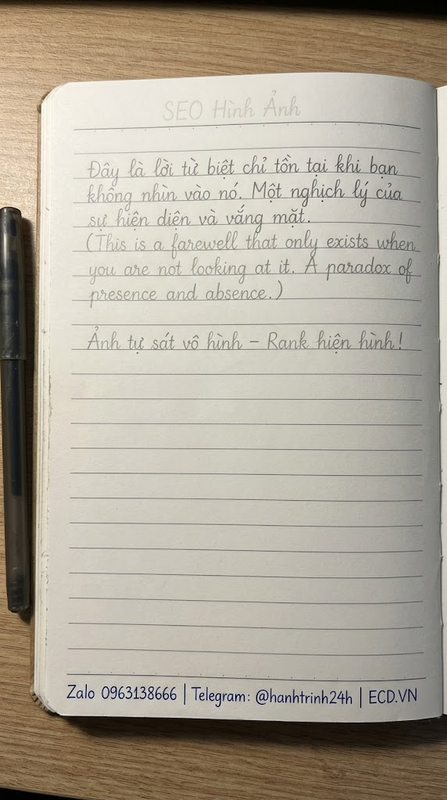 SEO Hình Ảnh
Đây là lời từ biệt chỉ tồn tại khi bạn
không nhìn vào nó. Một nghịch lý của
sự hiện diện và vắng mặt.
(This is a farewell that only exists when
you are not looking at it. A paradox of
presence and absence.)
Ảnh tự sát vô hình – Rank hiện hình!
Zalo 0963138666 | Telegram: @hanhtrinh24h | ECD.VN